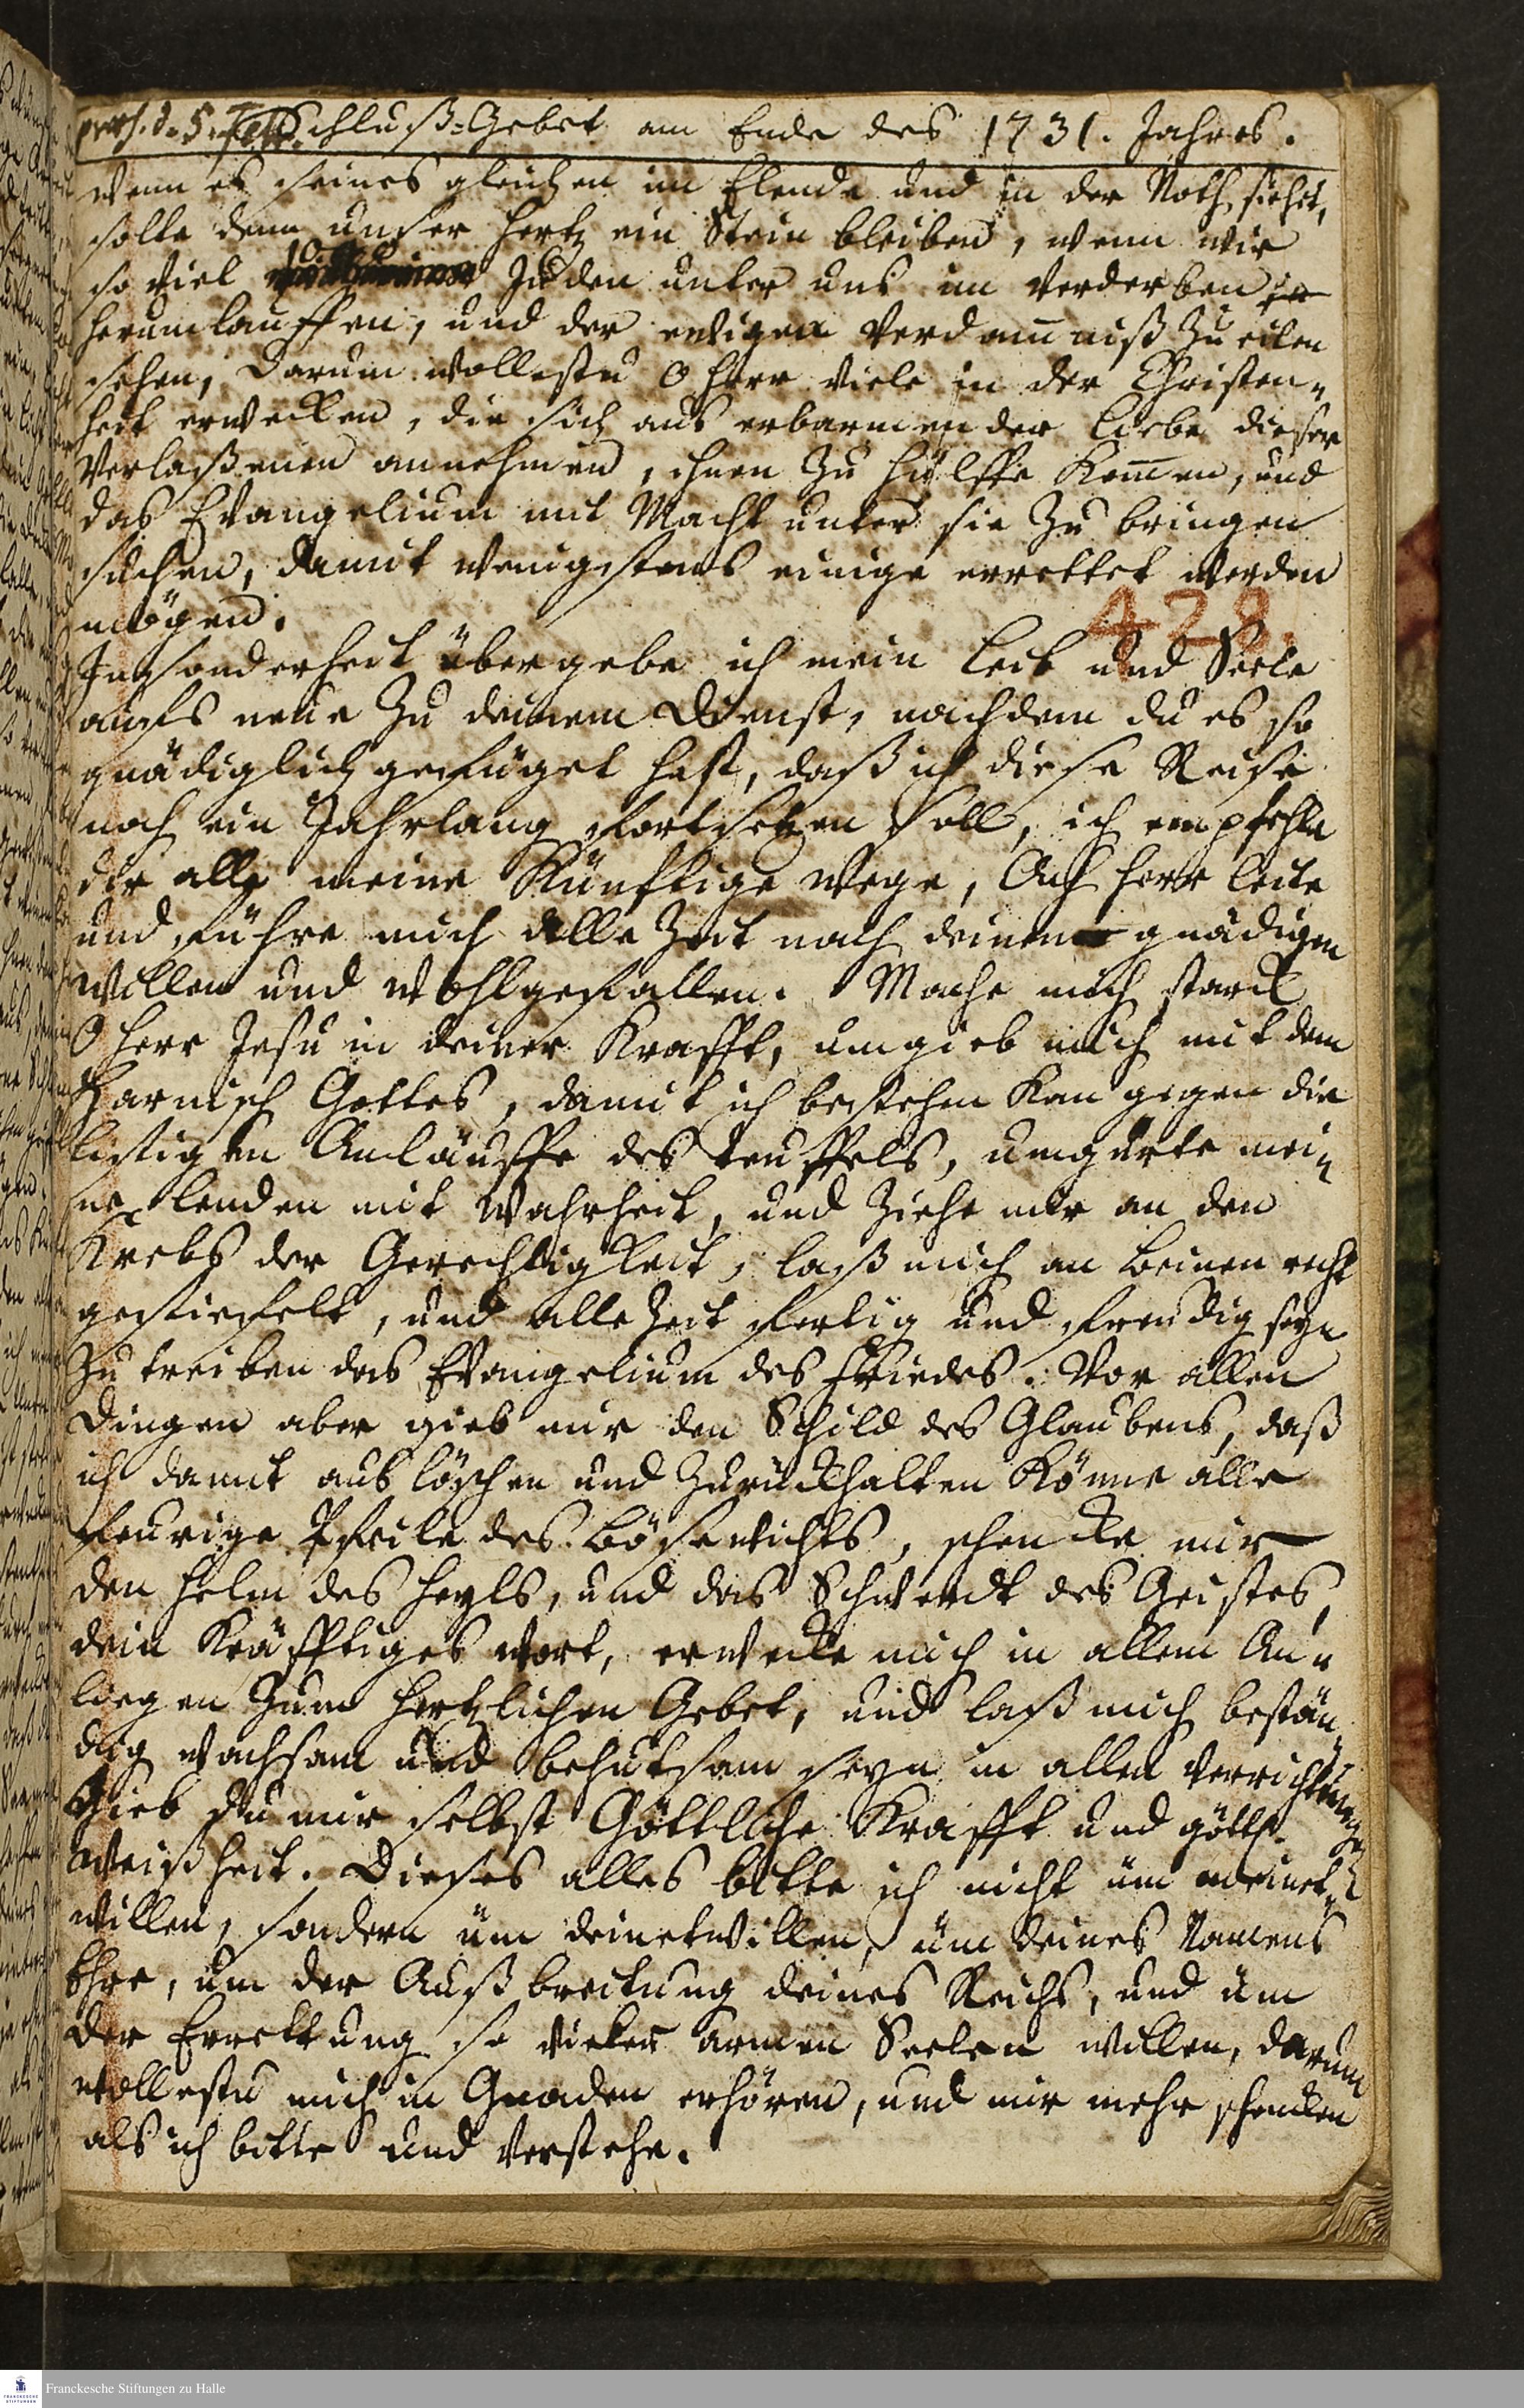 Schluß-Gebet am Ende des 1731. Jahres.
wenn es seines gleichen im Elende und in der Noth siehet,
solte denn unser Hertz ein Stein bleiben, wenn wir
so viel Juden unter uns im Verderben
herumlauffen, und der ewigen Verdam̅niß zu eilen
sehen, Darum wollestu O Herr viele in der Christen-
heit erwecken, die sich aus erbarmender Liebe dieser
Verlaßenen annehmen, ihnen zu Hülffe kom̅en, und
das Evangelium mit Macht unter sie zu bringen
suchen, damit wenigstens einige errettet werden
mögen.
428.
Insonderheit übergebe ich mein Leib und Seele
aufs neue zu deinem Dienst, nachdem du es so
gnädiglich gefüget hast, daß ich diese Reise
noch ein Jahrlang fortsetzen soll, ich empfehle
dir alle meine Künftige Wege, Ach Herr leite
und führe mich alle Zeit nach deinem gnädigen
Willen und Wohlgefallen. Mache mich starck
O Herr Jesu in deiner Krafft, umgieb mich mit dem
Harnisch Gottes, damit ich bestehen kan gegen die
listigen Anläuffe des Teuffels, umgürte mei-
ne Lenden mit Wahrheit, und ziehe mir an den
Krebs der Gerechtigkeit, laß mich an Beinen recht
gestiefelt, und alle Zeit fertig und freudig seyn
zu treiben das Evangelium des Friedes. Vor allen
Dingen aber gieb mir den Schild des Glaubens, daß
ich damit auslöschen und zurückhalten könne alle
feurige Pfeile des Bösewichts, schencke mir
den Helm des Heyls, und das Schwerdt des Geistes,
dein kräfftiges Wort, erwecke mich in allem An-
liegen zum Hertzlichen Gebet, und laß mich bestän-
dig wachsam und behutsam seyn in allen Verrichtungen
Gieb du mir selbst Göttliche Krafft und göttl.
Weißheit. Dieses alles bitte ich nicht üm meinet-
willen, sondern üm deinetwillen, üm deines Namens
Ehre, um der Außbreitung deines Reichs, und üm
der Errettung so vieler armen Seelen willen, darum
wollestu mich in Gnaden erhören, und mir mehr schencken
als ich bitte und Verstehe.
Franckesche Stiftungen zu Halle